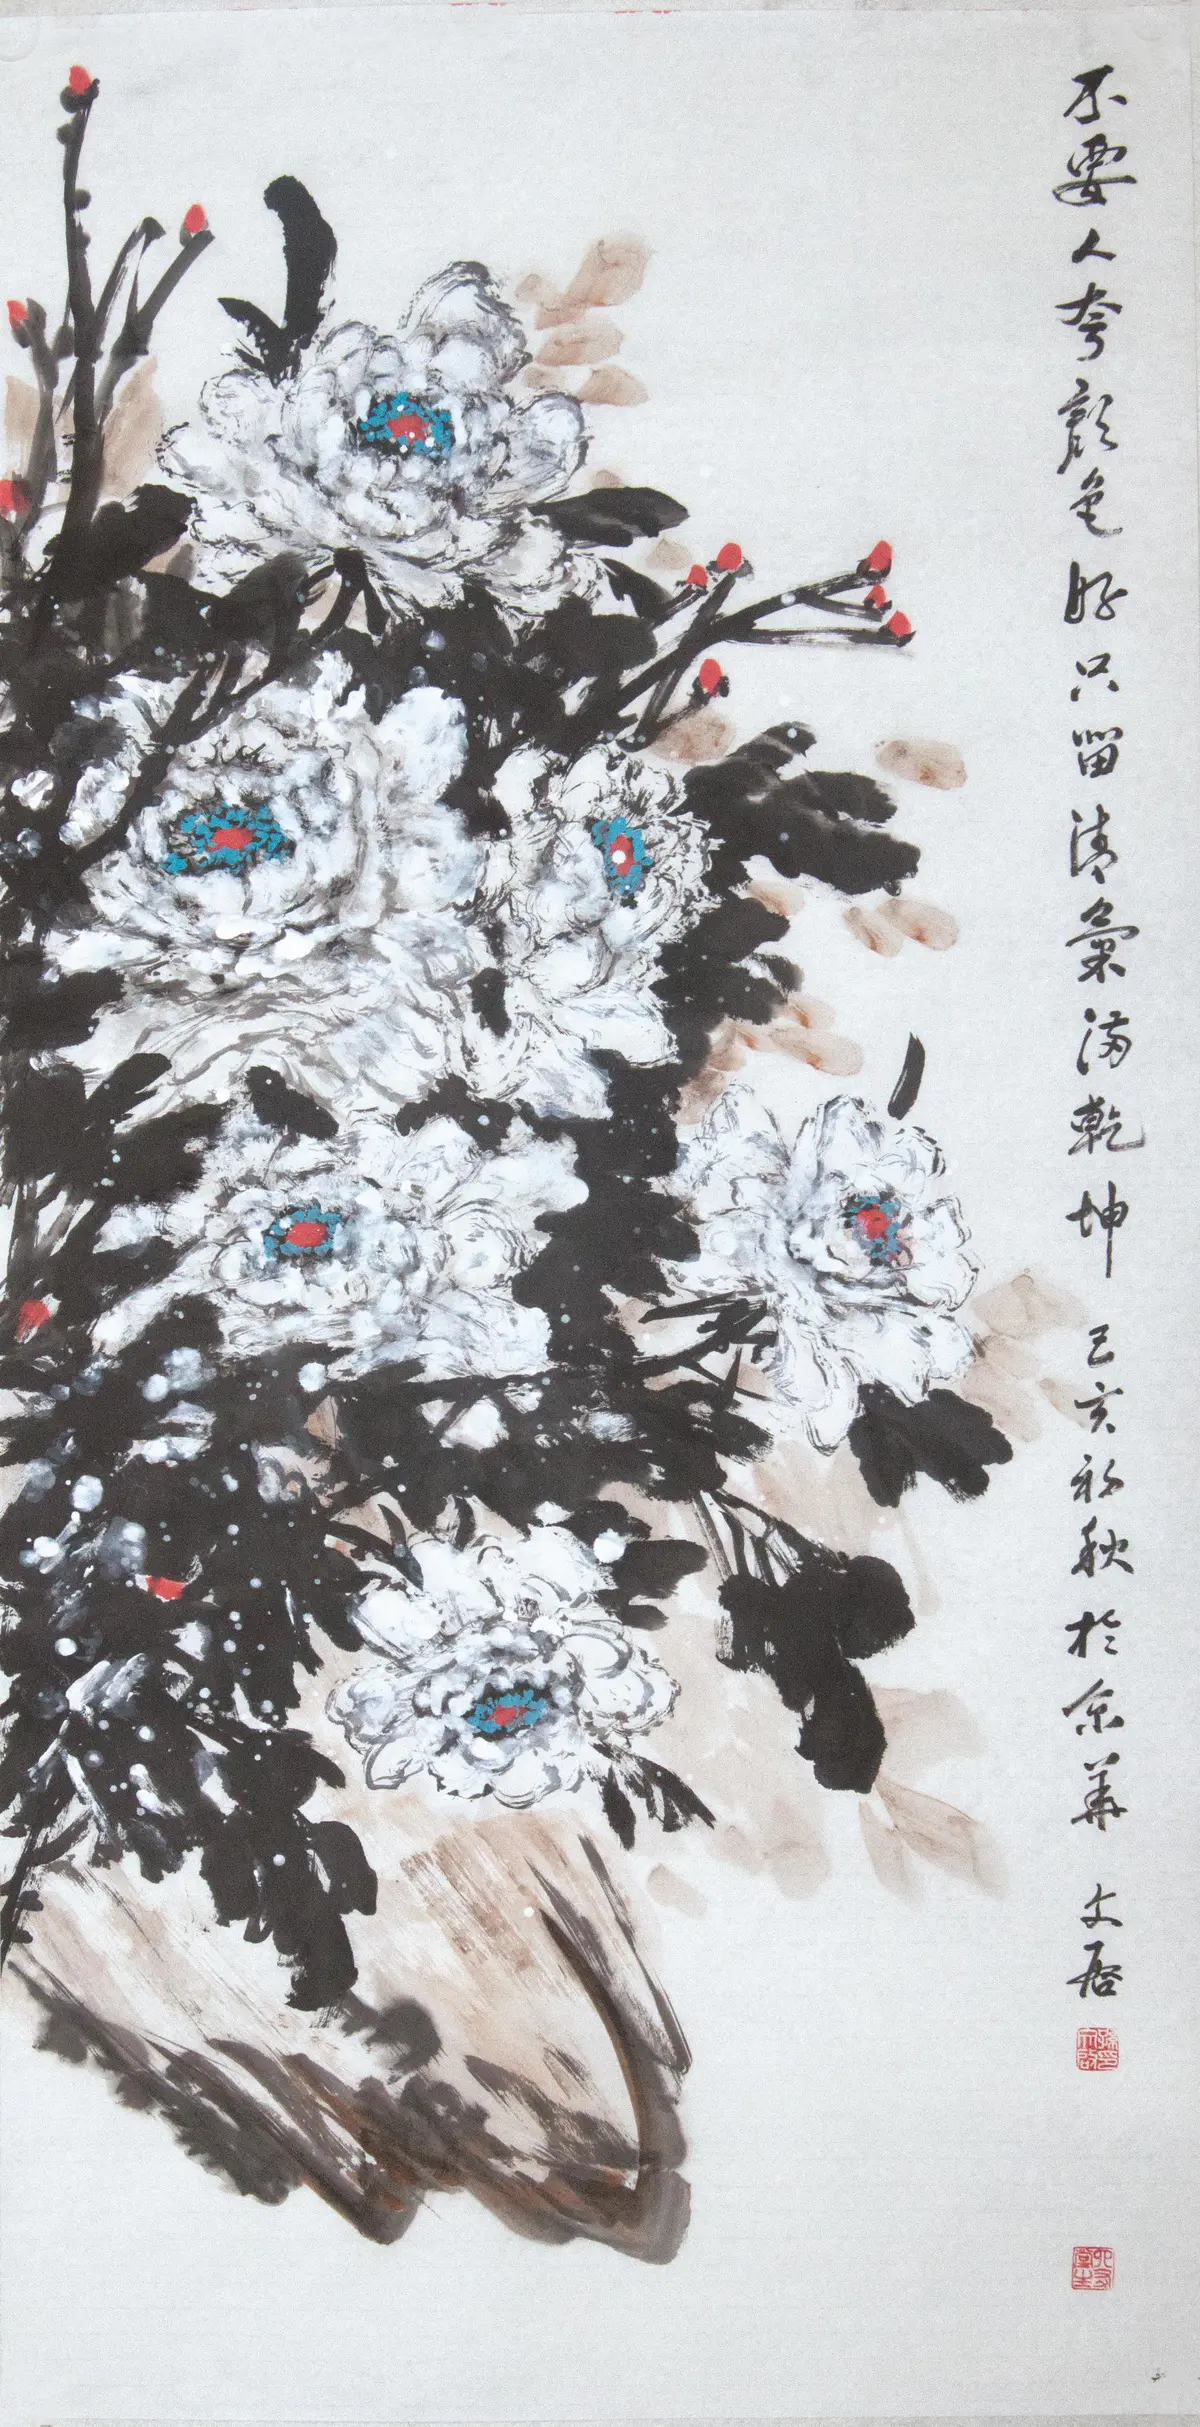 不要人夸颜色好只留清气满乾坤 己亥初秋於京华 文启